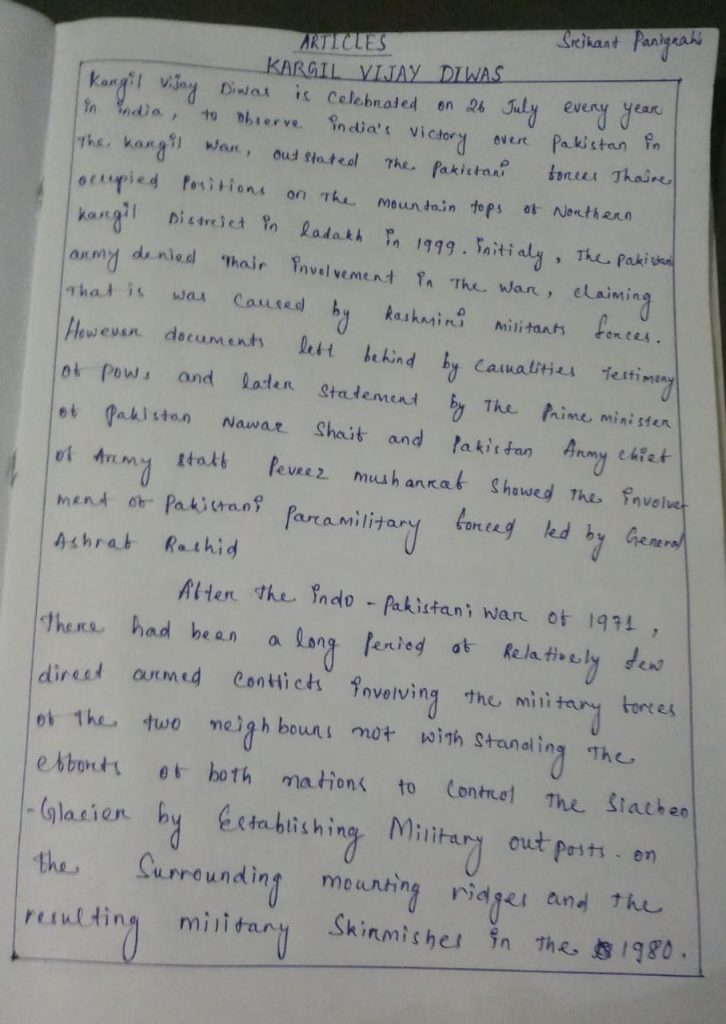 ARTICLES
Srikant Panigrahi
KARGIL VIJAY DIWAS
Kargil vijay Diwas is celebrated on 26 July every year
in india, to observe india's victory over Pakistan in
The kargil war, outstated The Pakistani forces Thaire
occupied Positions on The mountain tops of Northern
kargil District in ladakh in 1999. initialy, The pakistani
army denied Thair involvement in The war, claiming
That is was caused by kashmiri militants forces.
However documents left behind by casualities Testimony
of POWs and later Statement by The Prime minister
of Pakistan Nawaz Shaif and Pakistan Army chief
of Army staff Peveez musharraf showed The involve-
ment of Pakistani Paramilitary forced led by General
Ashraf Rashid
After the indo - Pakistani war of 1971,
There had been a long Period of Relatively few
direct armed conflicts involving the military forces
of the two neighbours not withstanding The
efforts of both nations to control The Siachen
-Glacier by Establishing Military outposts. on
the Surrounding mounting ridges and the
resulting military Skirmishes in the 1980.